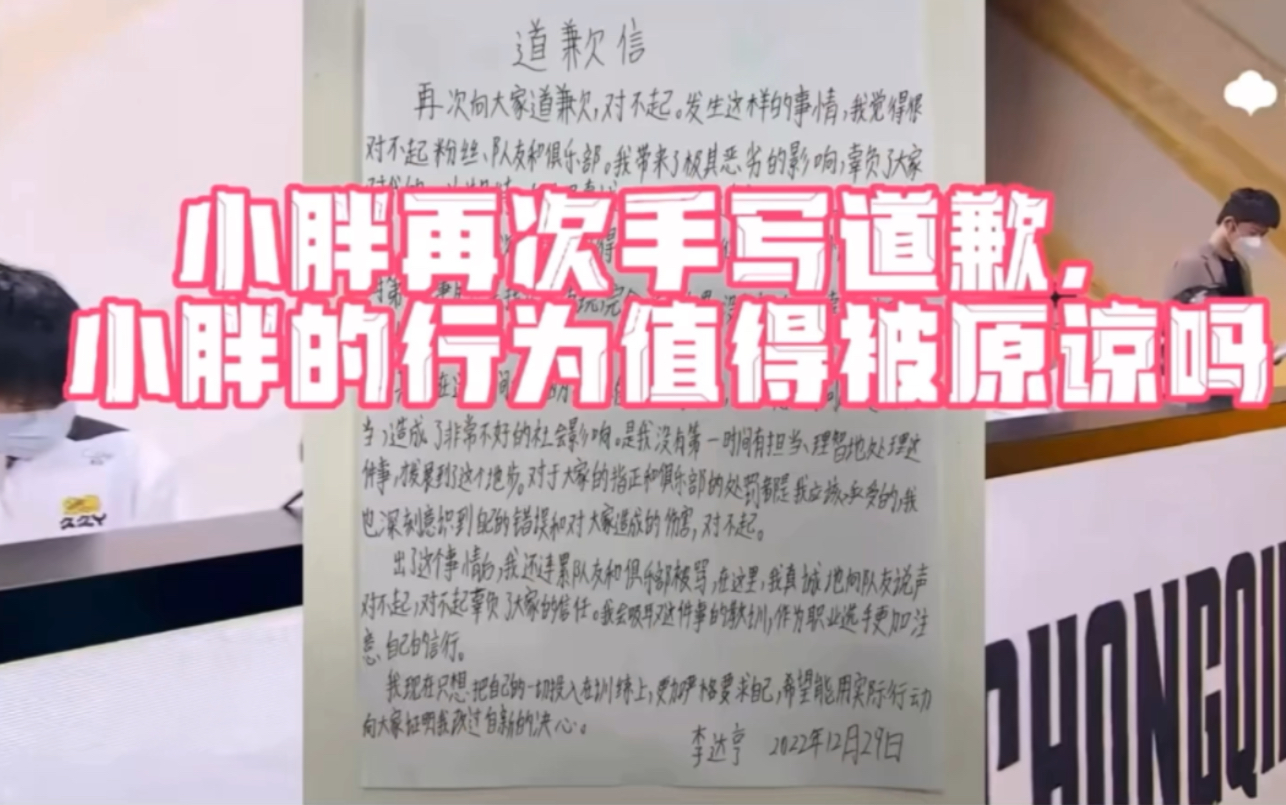 道歉信
再次向大家道歉,对不起。发生这样的事情,我觉得很
对不起粉丝、队友和俱乐部。我带来了极其恶劣的影响,辜负了大家
小胖再次手写道歉,
小胖的行为值得被原谅吗
当,造成了非常不好的社会影响。是我没有第一时间有担当、理智地处理这
件事,发展到了这个地步。对于大家的指正和俱乐部的处罚都是我应该承受的,我
也深刻意识到自己的错误和对大家造成的伤害,对不起。
出了这个事情后,我还连累队友和俱乐部被骂,在这里,我真诚地向队友说声
对不起,对不起辜负了大家的信任。我会吸取这件事的教训,作为职业选手更加注
意自己的言行。
我现在只想把自己的一切投入在训练上,更加严格要求自己,希望能用实际行动
向大家证明我改过自新的决心。
李达亨 2022年12月29日
CHONGQI